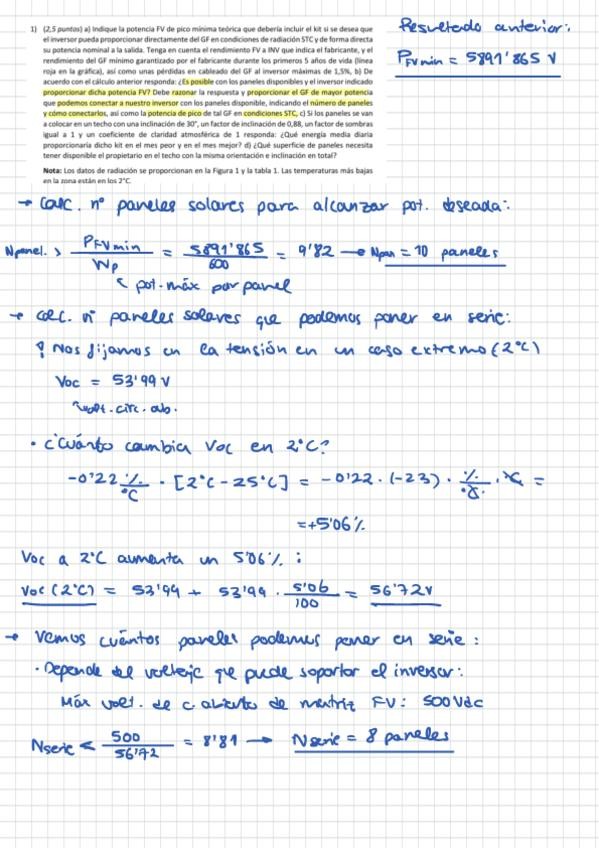 1) (2,5 puntos) a) Indique la potencia FV de pico mínima teórica que debería incluir el kit si se desea que
el inversor pueda proporcionar directamente del GF en condiciones de radiación STC y de forma directa
su potencia nominal a la salida. Tenga en cuenta el rendimiento FV a INV que indica el fabricante, y el
rendimiento del GF mínimo garantizado por el fabricante durante los primeros 5 años de vida (línea
roja en la gráfica), así como unas pérdidas en cableado del GF al inversor máximas de 1,5%, b) De
acuerdo con el cálculo anterior responda: ¿Es posible con los paneles disponibles y el inversor indicado
proporcionar dicha potencia FV? Debe razonar la respuesta y proporcionar el GF de mayor potencia
que podemos conectar a nuestro inversor con los paneles disponible, indicando el número de paneles
y cómo conectarlos, así como la potencia de pico de tal GF en condiciones STC, c) Si los paneles se van
a colocar en un techo con una inclinación de 30°, un factor de inclinación de 0,88, un factor de sombras
igual a 1 y un coeficiente de claridad atmosférica de 1 responda: ¿Qué energía media diaria
proporcionaría dicho kit en el mes peor y en el mes mejor? d) ¿Qué superficie de paneles necesita
tener disponible el propietario en el techo con la misma orientación e inclinación en total?
Nota: Los datos de radiación se proporcionan en la Figura 1 y la tabla 1. Las temperaturas más bajas
en la zona están en los 2°C.
Resultado anterior:
PFVmin = 5891'865 V
→ Calc. nº paneles solares para alcanzar pot. deseada:
Npanel. > PFVmin / Wp = 5891'865 / 600 = 9'82 → Npan = 10 paneles
pot. máx por panel
→ calc. nº paneles solares que podemos poner en serie:
Nos fijamos en la tensión en un caso extremo (2°C)
Voc = 53'99 V
volt. circ. ab.
· ¿Cuánto cambia Voc en 2°C?
-0'22 %/°C · [2°C - 25°C] = -0'22 · (-23) · %/°C · °C =
= +5'06%
Voc a 2°C aumenta un 5'06% :
Voc (2°C) = 53'99 + 53'99 · 5'06/100 = 56'72V
→ Vemos cuántos paneles podemos poner en serie :
· Depende del voltaje que puede soportar el inversor:
Máx volt. de c. abierto de matriz FV: 500 Vdc
Nserie < 500 / 56'72 = 8'81 → Nserie = 8 paneles